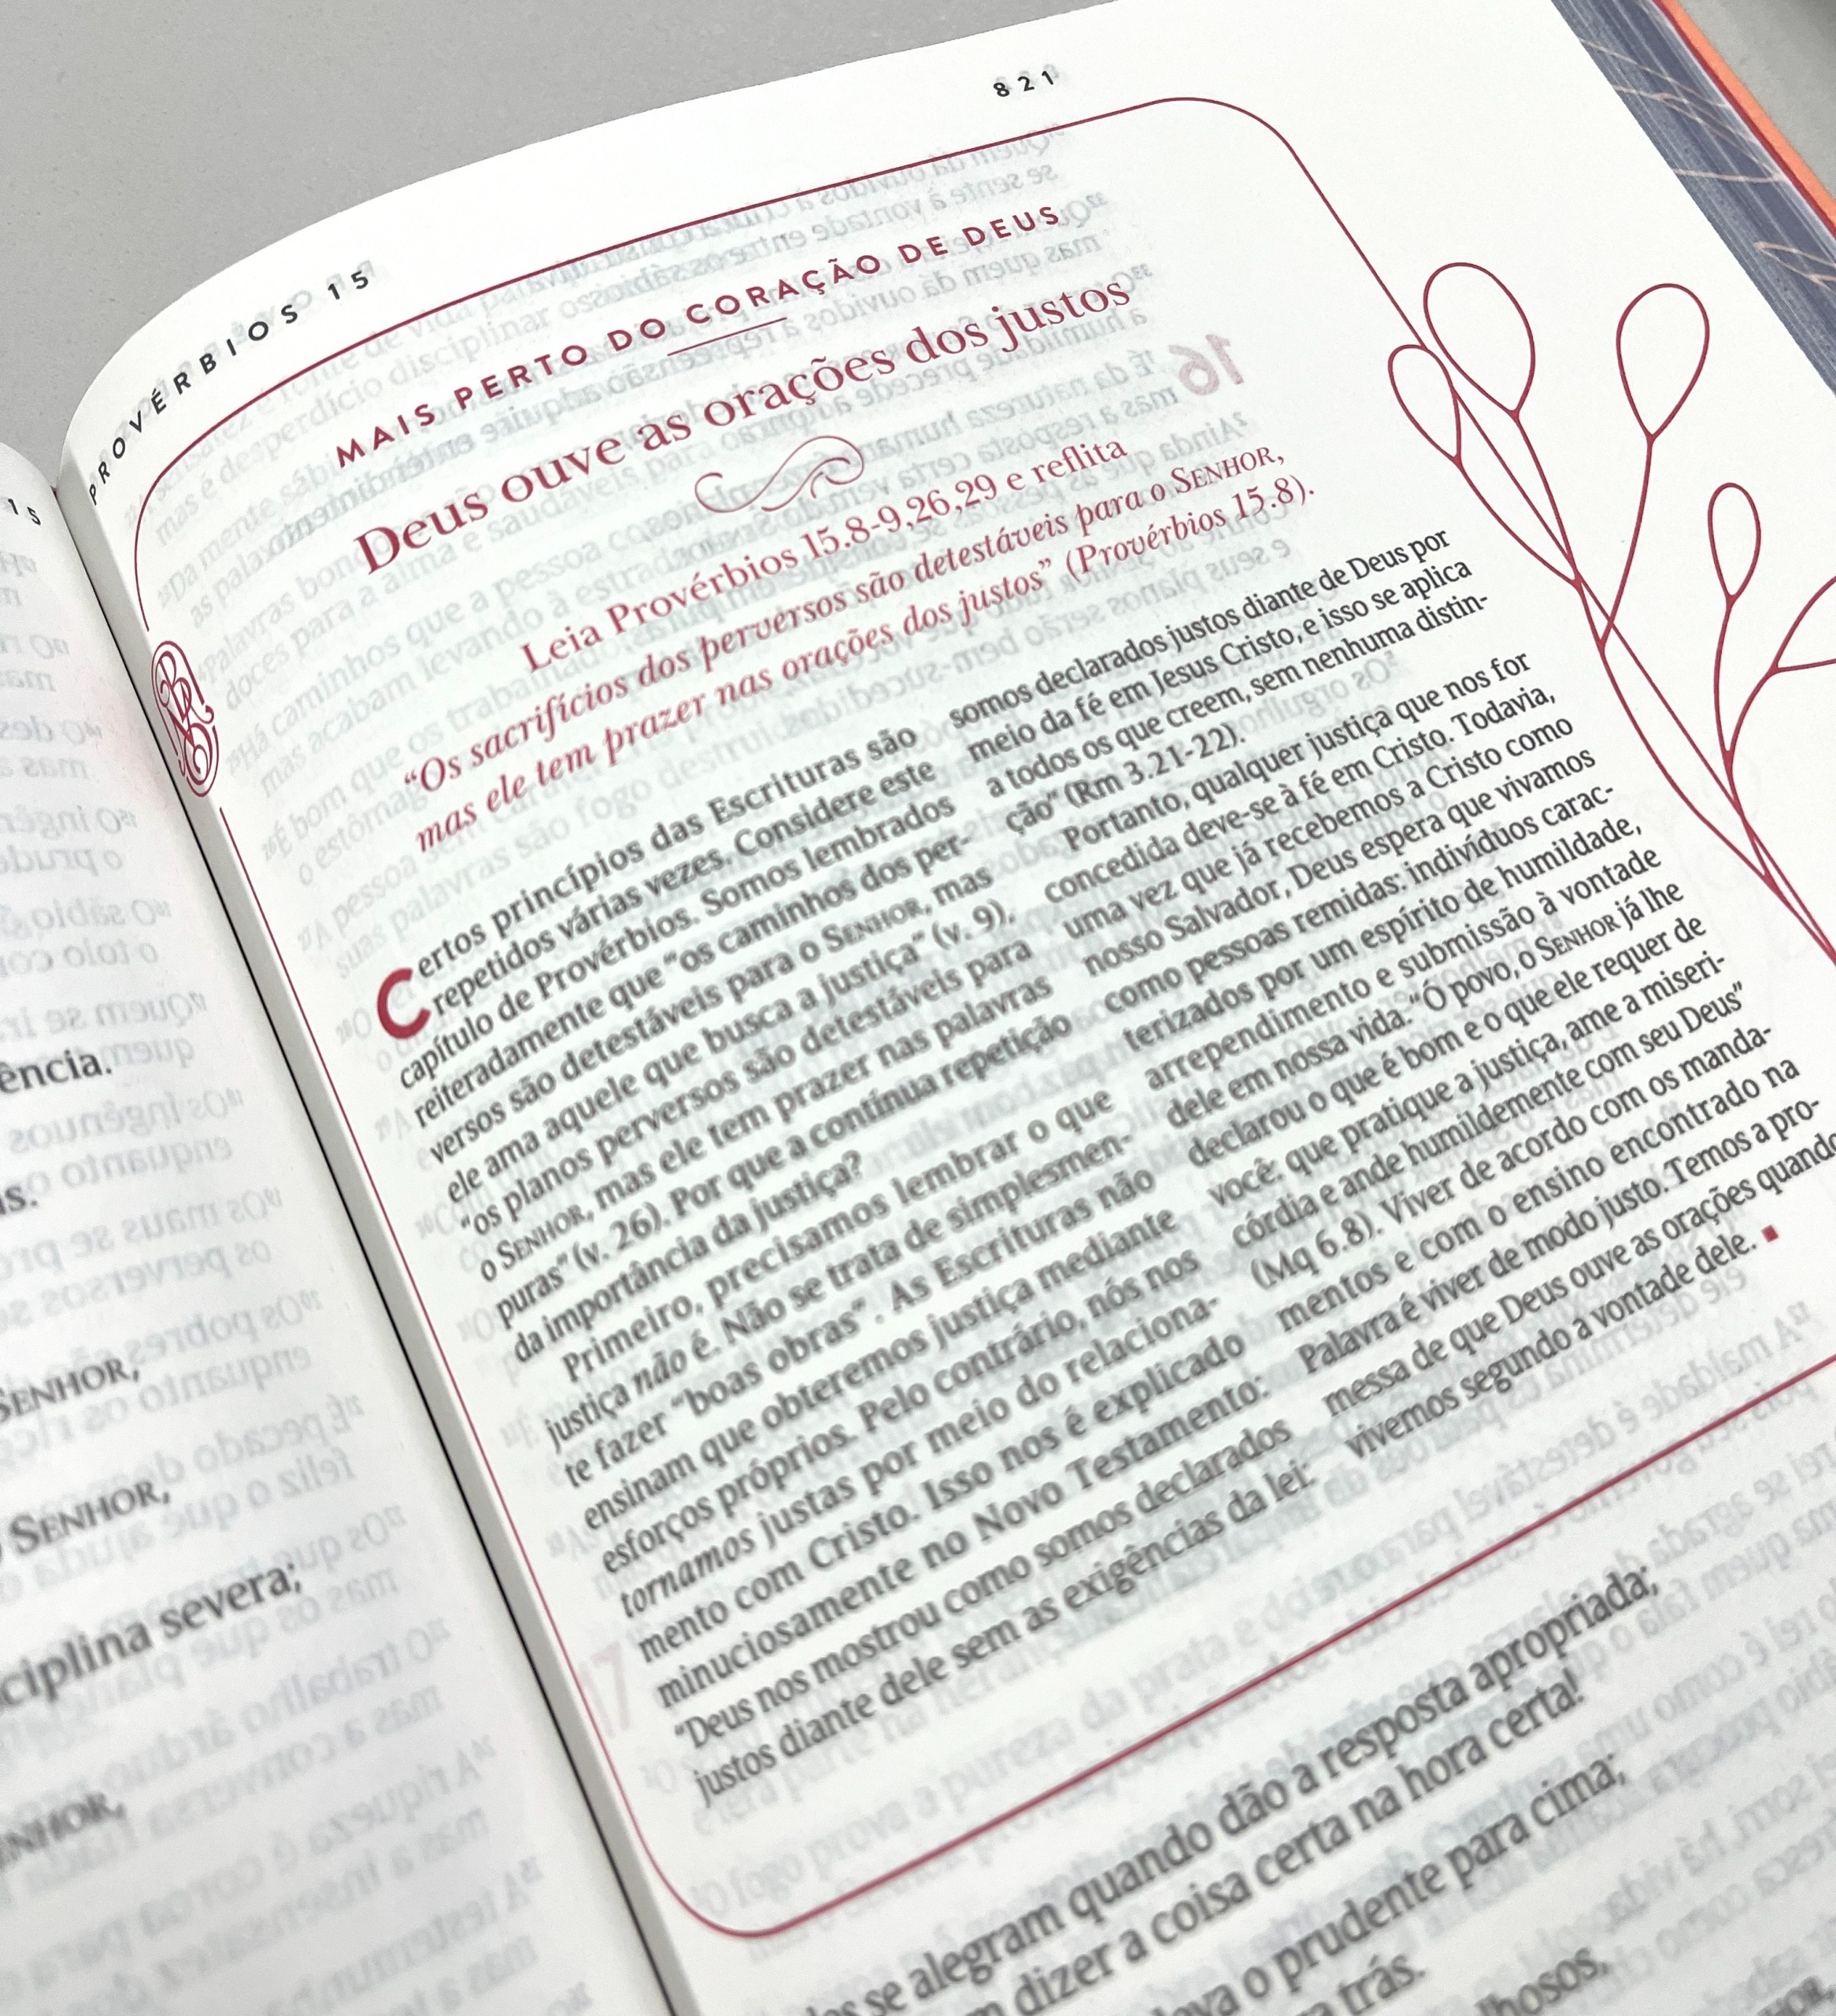 15
ência.
s.
SENHOR,
o SENHOR,
ciplina severa;
NHOR,
PROVÉRBIOS 15
821
MAIS PERTO DO CORAÇÃO DE DEUS
Deus ouve as orações dos justos
Leia Provérbios 15.8-9,26,29 e reflita
“Os sacrifícios dos perversos são detestáveis para o SENHOR,
mas ele tem prazer nas orações dos justos” (Provérbios 15.8).
Certos princípios das Escrituras são
repetidos várias vezes. Considere este
capítulo de Provérbios. Somos lembrados
reiteradamente que “os caminhos dos per-
versos são detestáveis para o SENHOR, mas
ele ama aquele que busca a justiça” (v. 9),
“os planos perversos são detestáveis para
o SENHOR, mas ele tem prazer nas palavras
puras” (v. 26). Por que a contínua repetição
da importância da justiça?
Primeiro, precisamos lembrar o que
justiça não é. Não se trata de simplesmen-
te fazer “boas obras”. As Escrituras não
ensinam que obteremos justiça mediante
esforços próprios. Pelo contrário, nós nos
tornamos justas por meio do relaciona-
mento com Cristo. Isso nos é explicado
minuciosamente no Novo Testamento:
“Deus nos mostrou como somos declarados
justos diante dele sem as exigências da lei:
somos declarados justos diante de Deus por
meio da fé em Jesus Cristo, e isso se aplica
a todos os que creem, sem nenhuma distin-
ção” (Rm 3.21-22).
Portanto, qualquer justiça que nos for
concedida deve-se à fé em Cristo. Todavia,
uma vez que já recebemos a Cristo como
nosso Salvador, Deus espera que vivamos
como pessoas remidas: indivíduos carac-
terizados por um espírito de humildade,
arrependimento e submissão à vontade
dele em nossa vida. “Ó povo, o SENHOR já lhe
declarou o que é bom e o que ele requer de
você: que pratique a justiça, ame a miseri-
córdia e ande humildemente com seu Deus”
(Mq 6.8). Viver de acordo com os manda-
mentos e com o ensino encontrado na
Palavra é viver de modo justo. Temos a pro-
messa de que Deus ouve as orações quando
vivemos segundo a vontade dele.
se alegram quando dão a resposta apropriada;
dizer a coisa certa na hora certa!
o prudente para cima;
trás.